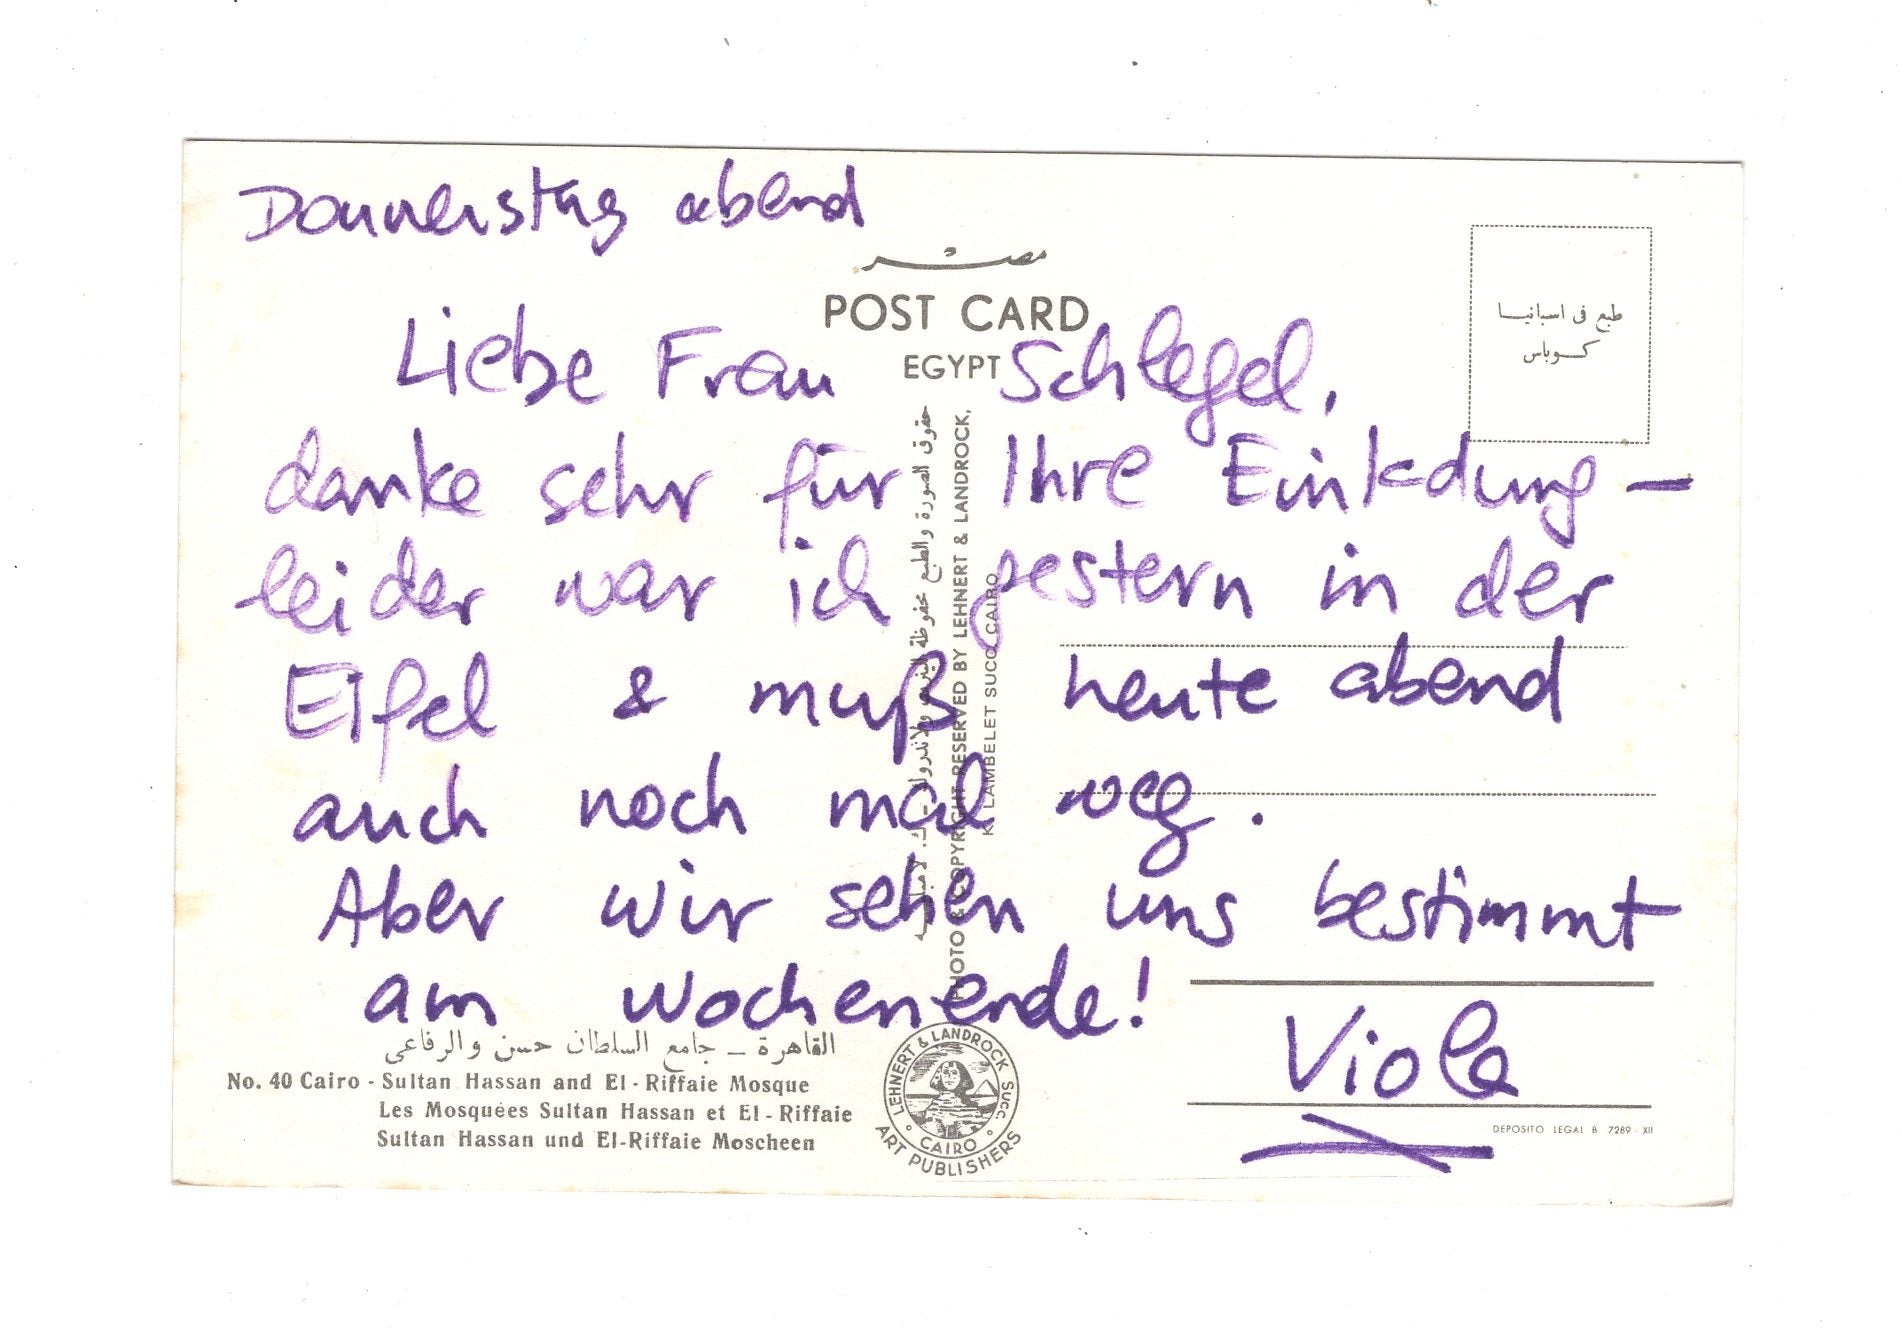 Donnerstag abend
مصر
POST CARD
EGYPT
طبع في اسبانيا
كوباس
Liebe Frau Schlegel,
danke sehr für Ihre Einladung –
leider war ich gestern in der
Eifel & muß heute abend
auch noch mal weg.
Aber wir sehen uns bestimmt
am Wochenende!
Viola
PHOTO & COPYRIGHT RESERVED BY LEHNERT & LANDROCK,
K. LAMBELET SUCC. CAIRO
القاهرة – جامع السلطان حسن والرفاعى
No. 40 Cairo - Sultan Hassan and El-Riffaie Mosque
Les Mosquées Sultan Hassan et El-Riffaie
Sultan Hassan und El-Riffaie Moscheen
LEHNERT & LANDROCK SUCC.
CAIRO
ART PUBLISHERS
DEPOSITO LEGAL B 7289 - XII